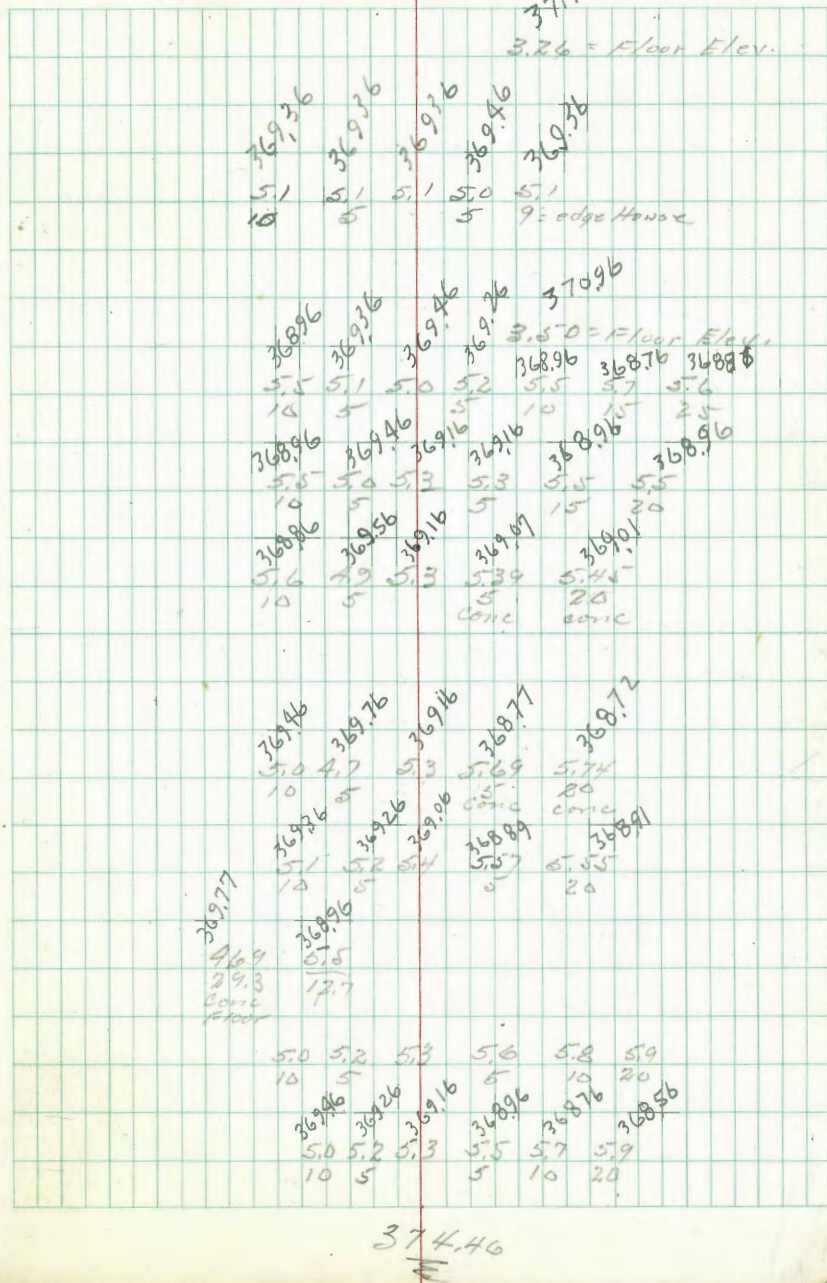 371.
3.26 = Floor Elev.
369.36 369.36 369.36 369.46 369.36
5.1 5.1 5.1 5.0 5.1
10 5 5 9 = edge House
370.96
3.50 = Floor Elev.
368.96 369.36 369.46 369.26 368.96 368.76
5.5 5.1 5.0 5.2 5.5 5.7 5.6
10 5 5 10 15 25
368.96 369.46 369.16 369.16 368.96 368.96
5.5 5.0 5.3 5.3 5.5 5.5
10 5 5 15 20
368.86 369.56 369.16 369.07 369.01
5.6 4.9 5.3 5.39 5.45
10 5 5 20
conc conc
369.46 369.76 369.16 368.77 368.72
5.0 4.7 5.3 5.69 5.74
10 5 5 20
conc conc
369.36 369.26 369.06 368.89 368.91
5.1 5.2 5.4 5.57 5.55
10 5 5 20
369.77 368.96
4.69 5.5
29.3 12.7
Conc
Floor
5.0 5.2 5.3 5.6 5.8 5.9
10 5 5 10 20
369.46 369.26 369.16 368.96 368.76 368.56
5.0 5.2 5.3 5.5 5.7 5.9
10 5 5 10 20
374.46